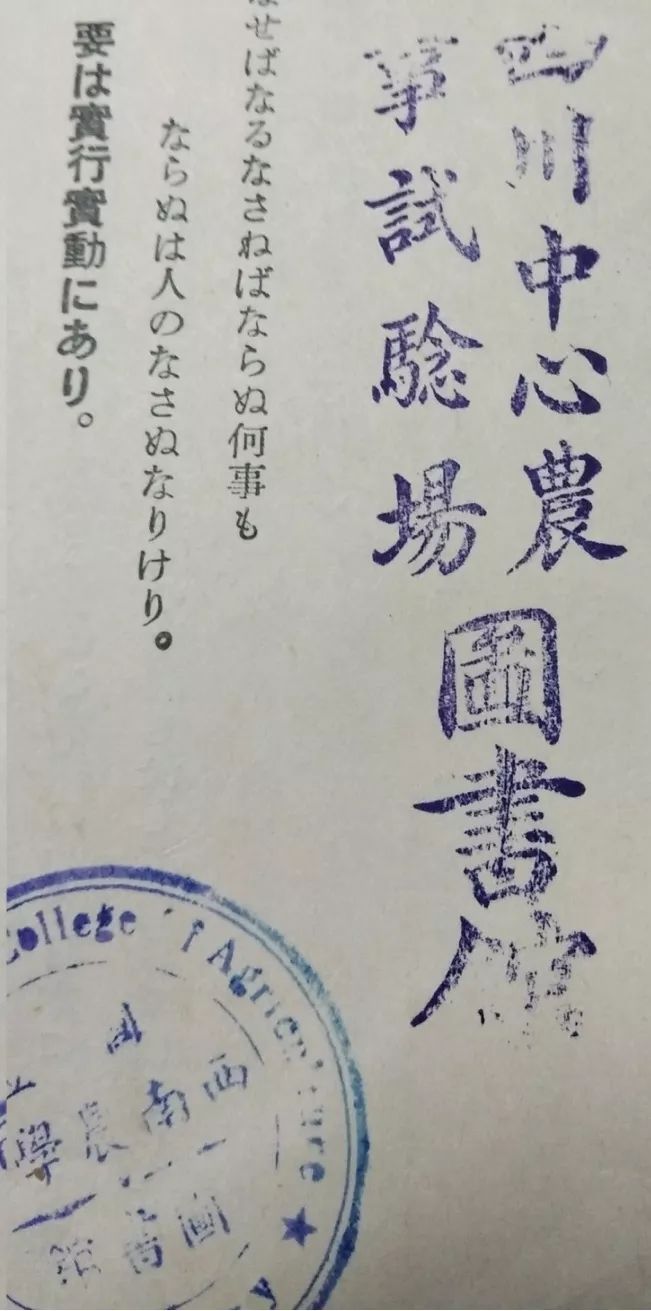 四川中心農
事試驗場
圖書館
なせばなるなさねばならぬ何事も
ならぬは人のなさぬなりけり。
要は實行實動にあり。
College of Agriculture
西南農學
圖書館